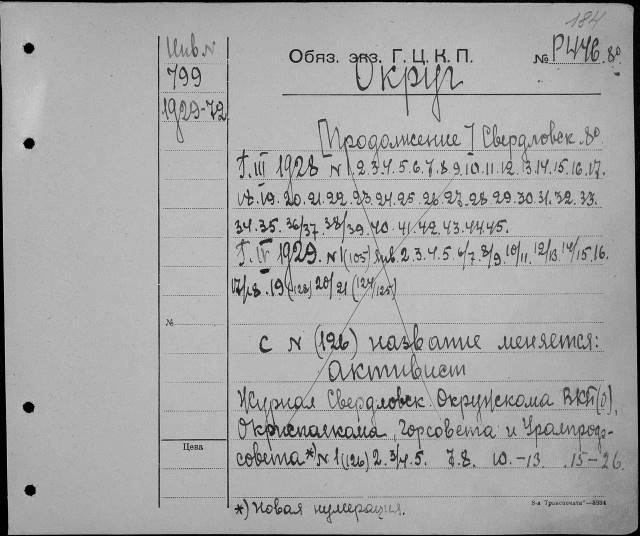 184
Инв N
799
1929-72
Обяз. экз. Г.Ц.К.П.
№ Р446.8°
Округ
[Продолжение] Свердловск. 8°
Г. III 1928 N 1.2.3.4.5.6.7.8.9.10.11.12.13.14.15.16.17.
18.19.20.21.22.23.24.25.26.27.28.29.30.31.32.33.
34.35.36/37.38/39.40.41.42.43.44.45.
Г. IV 1929. N 1(105) янв. 2.3.4.5.6/7.8/9.10/11.12/13.14/15.16.
17/18.19(123)20/21(124/125)
№
с N (126) название меняется:
активист
Журнал Свердловск. Окружкома ВКП(б),
Окрисполкома, Горсовета и Уралпрод-
Цена
совета*) N 1(126) 2.3/4.5. 7.8. 10.-13. 15-26.
*) Новая нумерация.
3-я "Транспечать"—3934